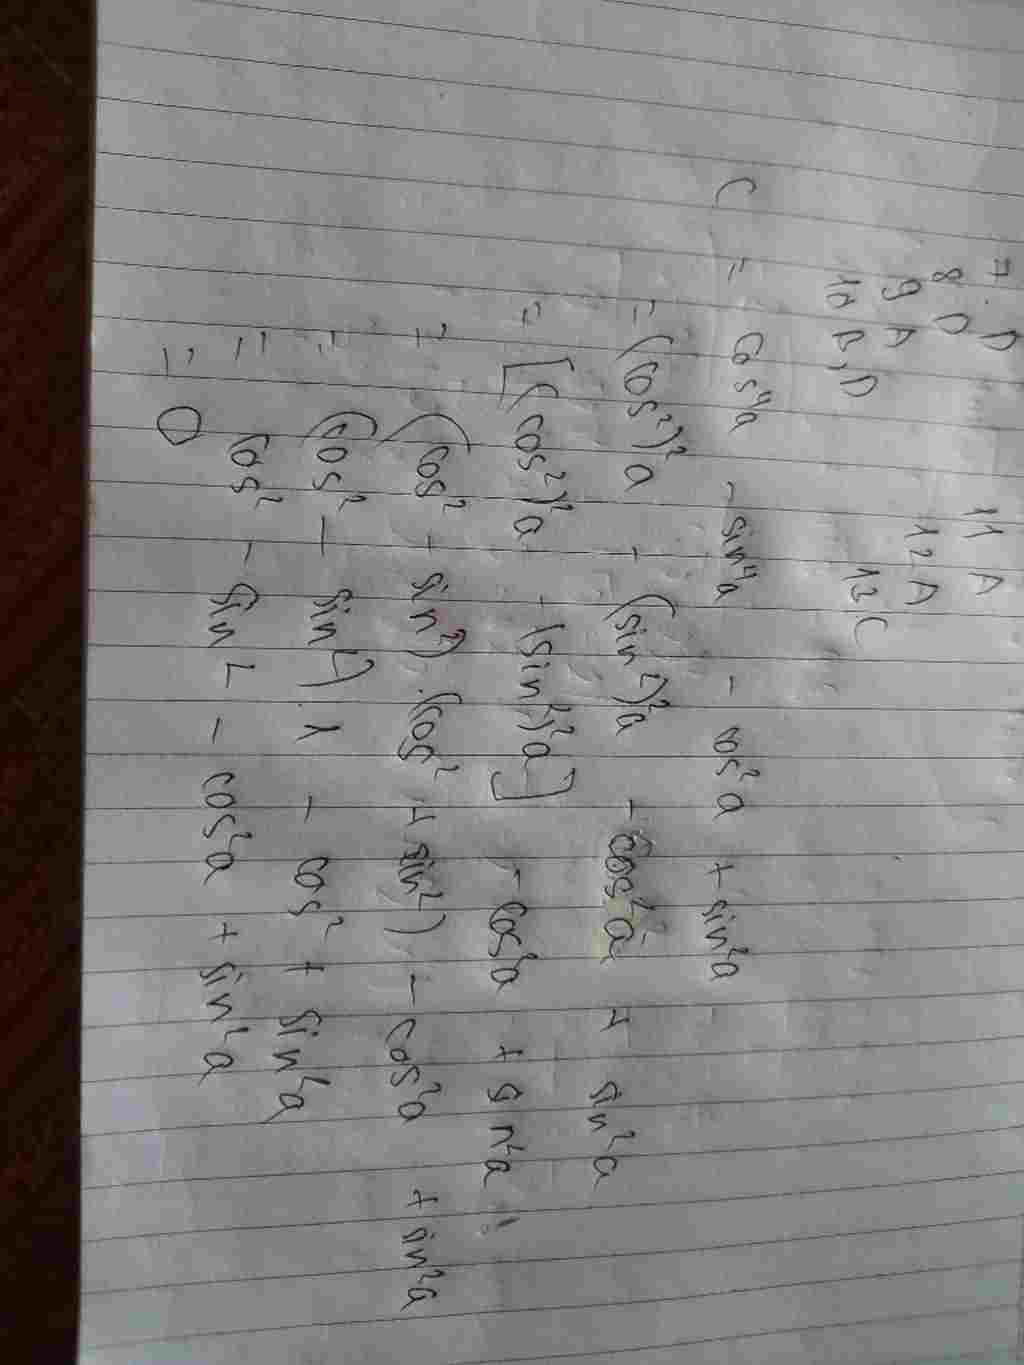 7. D 11 A
8 D 12 A
9 A 13 C
10 B, D
C = cos⁴a - sin⁴a - cos²a + sin²a
= (cos²)²a - (sin²)²a - cos²a + sin²a
= [(cos²)²a - (sin²)²a] - cos²a + sin²a
= (cos² - sin²) . (cos² + sin²) - cos²a + sin²a
= (cos² - sin²) . 1 - cos² + sin²a
= cos² - sin² - cos²a + sin²a
= 0